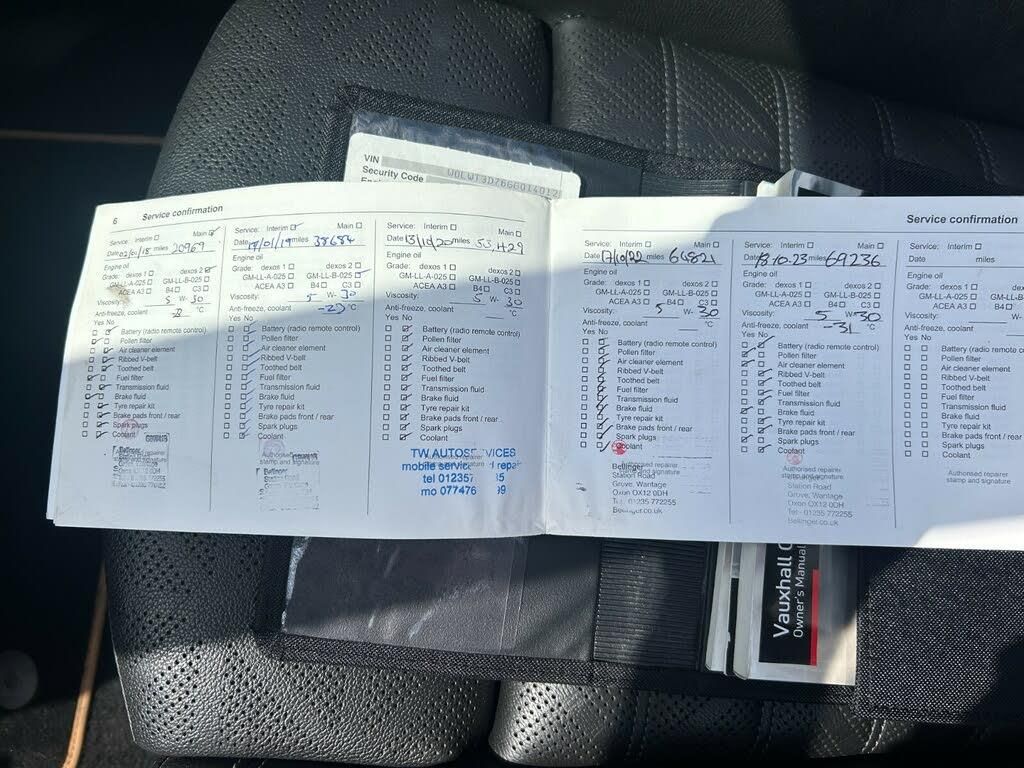 VIN
Security Code
W0LWT3D76GG014012
6 Service confirmation
Service: Interim Main
Date 02/01/18 miles 20969
Engine oil
Grade: dexos 1 dexos 2
GM-LL-A-025 GM-LL-B-025
ACEA A3 B4 C3
Viscosity: 5 W- 30
Anti-freeze, coolant °C
Yes No
Battery (radio remote control)
Pollen filter
Air cleaner element
Ribbed V-belt
Toothed belt
Fuel filter
Transmission fluid
Brake fluid
Tyre repair kit
Brake pads front / rear
Spark plugs
Coolant
Bellinger
Service: Interim Main
Date 17/01/19 miles 38684
Engine oil
Grade: dexos 1 dexos 2
GM-LL-A-025 GM-LL-B-025
ACEA A3 B4 C3
Viscosity: 5 W- 30
Anti-freeze, coolant °C
Yes No
Battery (radio remote control)
Pollen filter
Air cleaner element
Ribbed V-belt
Toothed belt
Fuel filter
Transmission fluid
Brake fluid
Tyre repair kit
Brake pads front / rear
Spark plugs
Coolant
stamp and signature
Bellinger
Service: Interim Main
Date 13/10/20 miles 53,429
Engine oil
Grade: dexos 1 dexos 2
GM-LL-A-025 GM-LL-B-025
ACEA A3 B4 C3
Viscosity: 5 W- 30
Anti-freeze, coolant °C
Yes No
Battery (radio remote control)
Pollen filter
Air cleaner element
Ribbed V-belt
Toothed belt
Fuel filter
Transmission fluid
Brake fluid
Tyre repair kit
Brake pads front / rear
Spark plugs
Coolant
TW AUTOSERVICES
mobile
tel 012357
mo 077476
Service confirmation
Service: Interim Main
Date 17/10/22 miles 66821
Engine oil
Grade: dexos 1 dexos 2
GM-LL-A-025 GM-LL-B-025
ACEA A3 B4 C3
Viscosity: 5 W- 30
Anti-freeze, coolant °C
Yes No
Battery (radio remote control)
Pollen filter
Air cleaner element
Ribbed V-belt
Toothed belt
Fuel filter
Transmission fluid
Brake fluid
Tyre repair kit
Brake pads front / rear
Spark plugs
Coolant
Authorised repairer
stamp and signature
Bellinger
Station Road
Grove, Wantage
Oxon OX12 0DH
Tel - 01235 772255
Bellinger.co.uk
Service: Interim Main
Date 18.10.23 miles 69236
Engine oil
Grade: dexos 1 dexos 2
GM-LL-A-025 GM-LL-B-025
ACEA A3 B4 C3
Viscosity: 5 W- 30
Anti-freeze, coolant -31 °C
Yes No
Battery (radio remote control)
Pollen filter
Air cleaner element
Ribbed V-belt
Toothed belt
Fuel filter
Transmission fluid
Brake fluid
Tyre repair kit
Brake pads front / rear
Spark plugs
Coolant
Authorised repairer
stamp and signature
Station Road
Grove, Wantage
Oxon OX12 0DH
Tel - 01235 772255
Bellinger.co.uk
Service: Interim Main
Date miles
Engine oil
Grade: dexos 1
GM-LL-A-025
ACEA A3
Viscosity:
Anti-freeze, coolant
Yes No
Battery (radio remote
Pollen filter
Air cleaner element
Ribbed V-belt
Toothed belt
Fuel filter
Transmission fluid
Brake fluid
Tyre repair kit
Brake pads front / rear
Spark plugs
Coolant
Authorised repairer
stamp and signature
Vauxhall
Owner's Manual